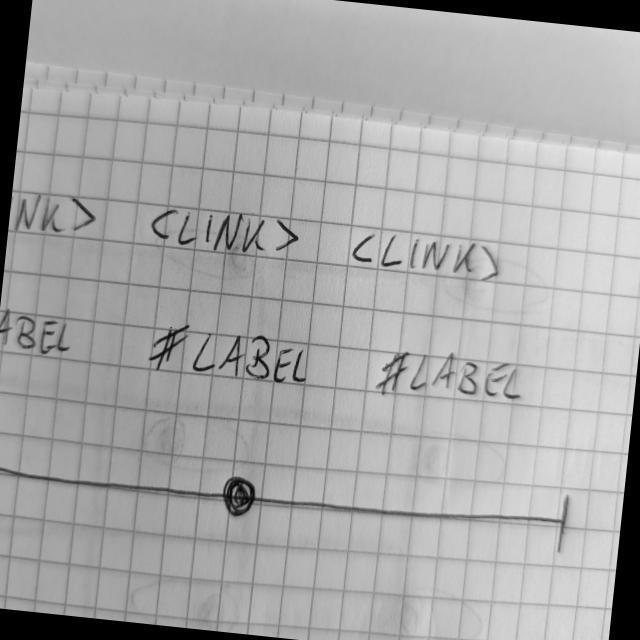 NK> <LINK> <LINK>
ABEL #LABEL #LABEL